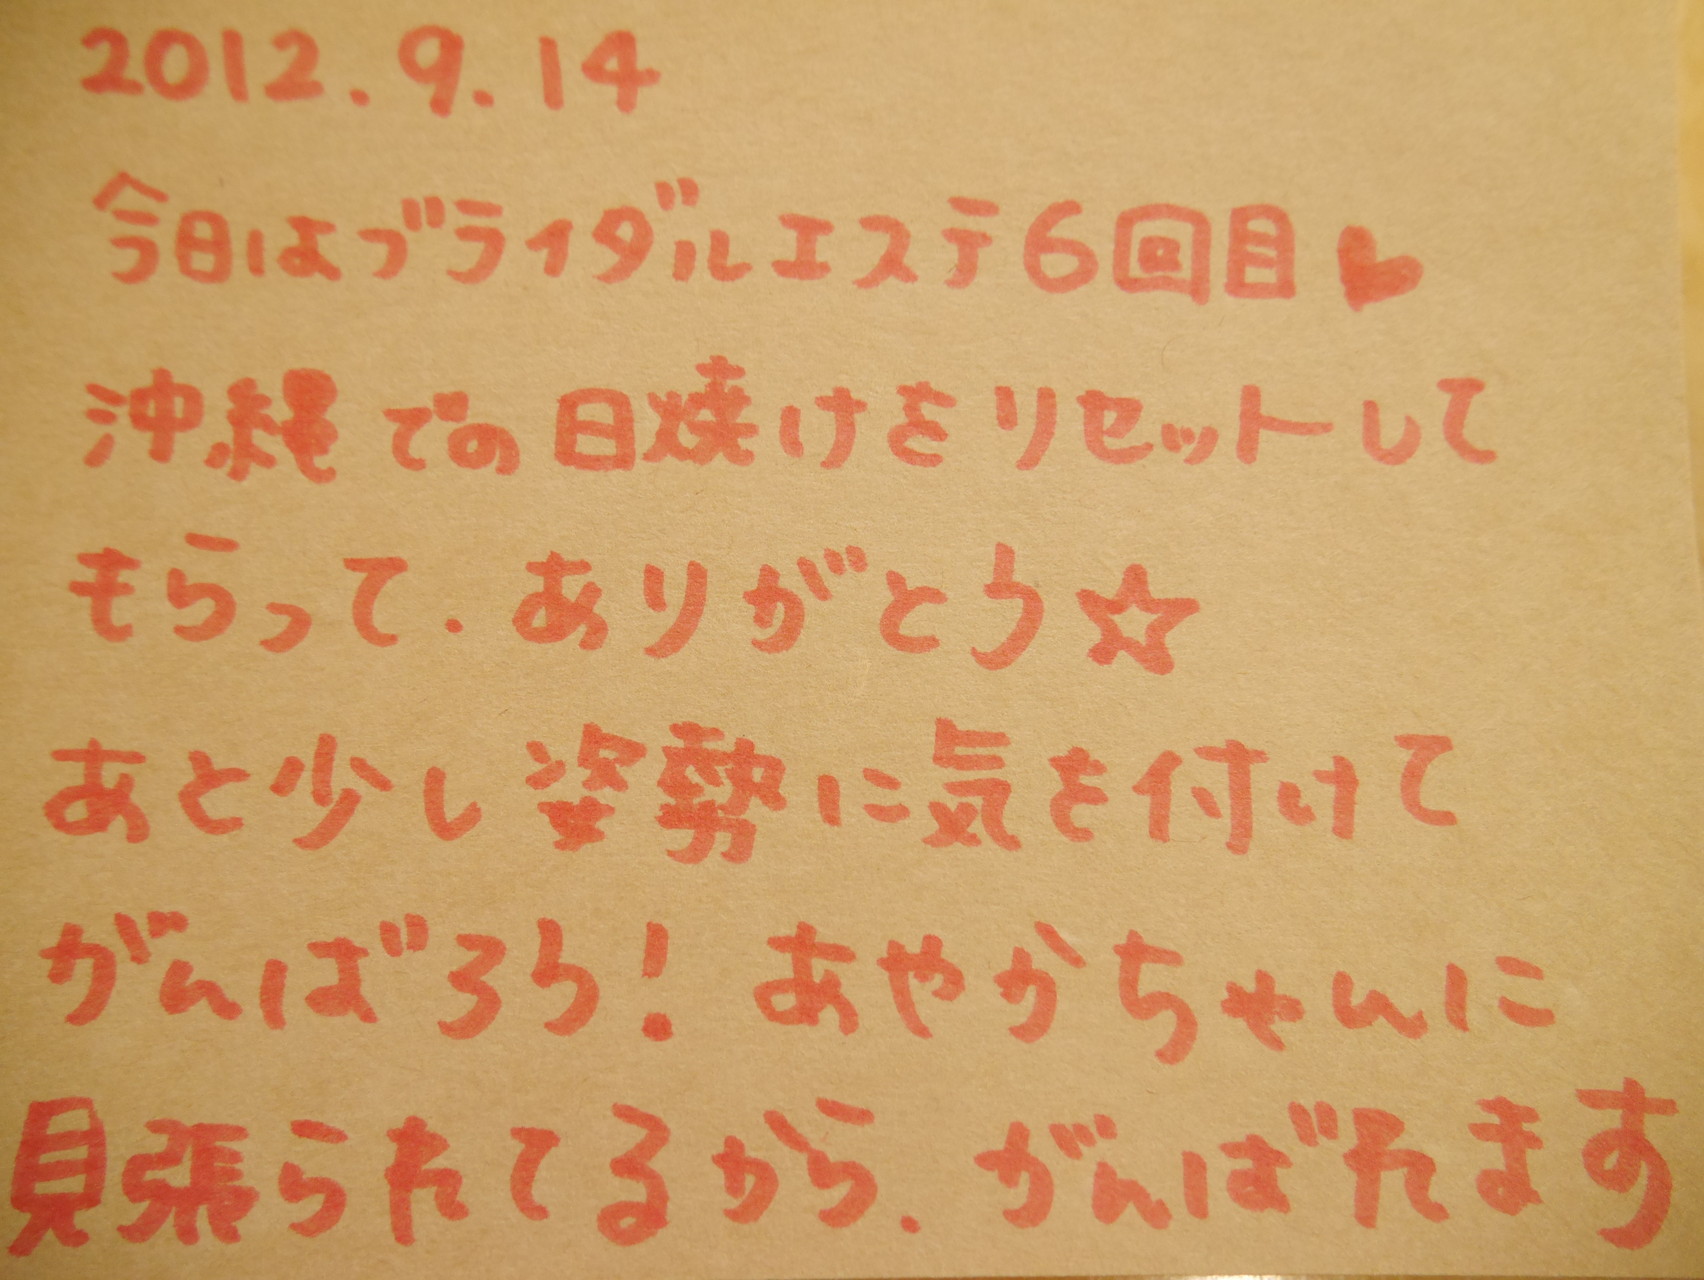 2012.9.14
今日はブライダルエステ6回目♥
沖縄での日焼けをリセットして
もらって.ありがとう☆
あと少し姿勢に気を付けて
がんばろう!あやかちゃんに
見張られてるから.がんばれます